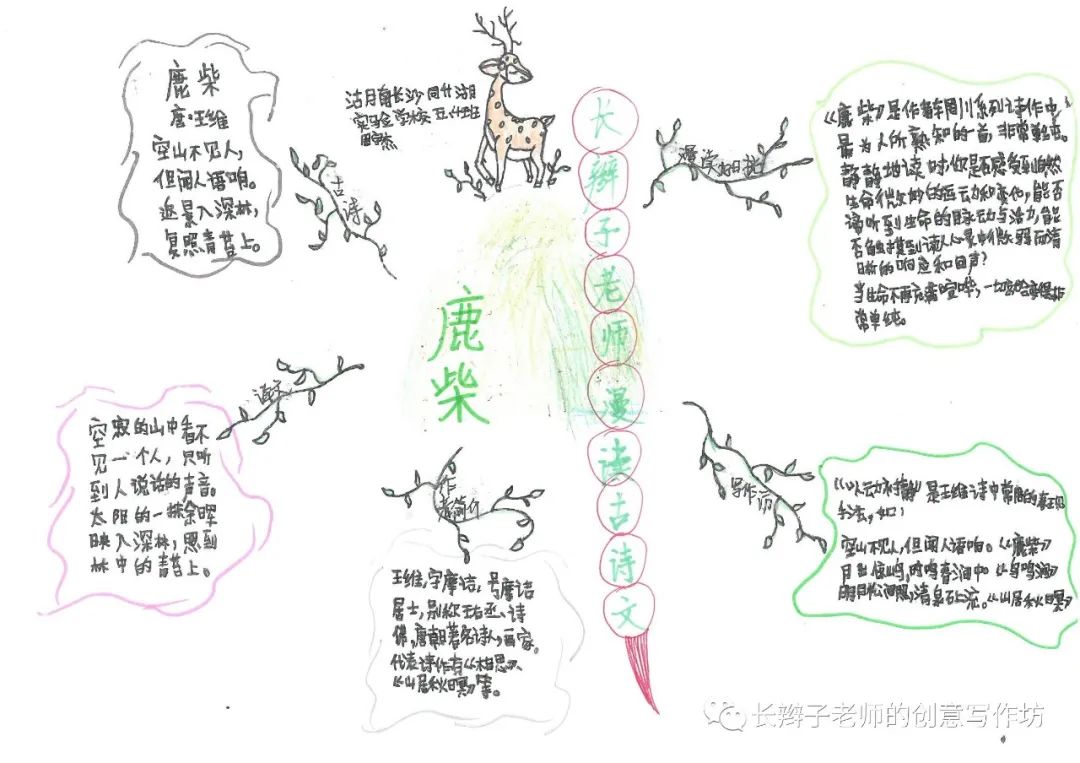 鹿柴
唐·王维
空山不见人,
但闻人语响。
返景入深林,
复照青苔上。
古诗
长沙
实验学校
鹿柴
长辫子老师漫读古诗文
《鹿柴》是作者辋川系列诗作中
最为人所熟知的一首,非常单纯。
静静地读时,你是否感受到自然
生命微妙的运动和变化,能否
谛听到生命的脉动与活力,能
否触摸到诗人心景中微弱而清
晰的响应和回声?
当生命不再充满喧哗,一切都会变得非
常单纯。
译文
空寂的山中看不
见一个人,只听
到人说话的声音。
太阳的一抹余晖
映入深林,
林中的青苔上。
作者简介
王维,字摩诘,号摩诘
居士,别称王右丞、诗
佛,唐朝著名诗人,画家。
代表诗作有《相思》、
《山居秋暝》等。
写作
《以动衬静》是王维诗中常用的表现
手法,如:
空山不见人,但闻人语响。《鹿柴》
月出惊山鸟,时鸣春涧中。《鸟鸣涧》
明月松间照,清泉石上流。《山居秋暝》
长辫子老师的创意写作坊